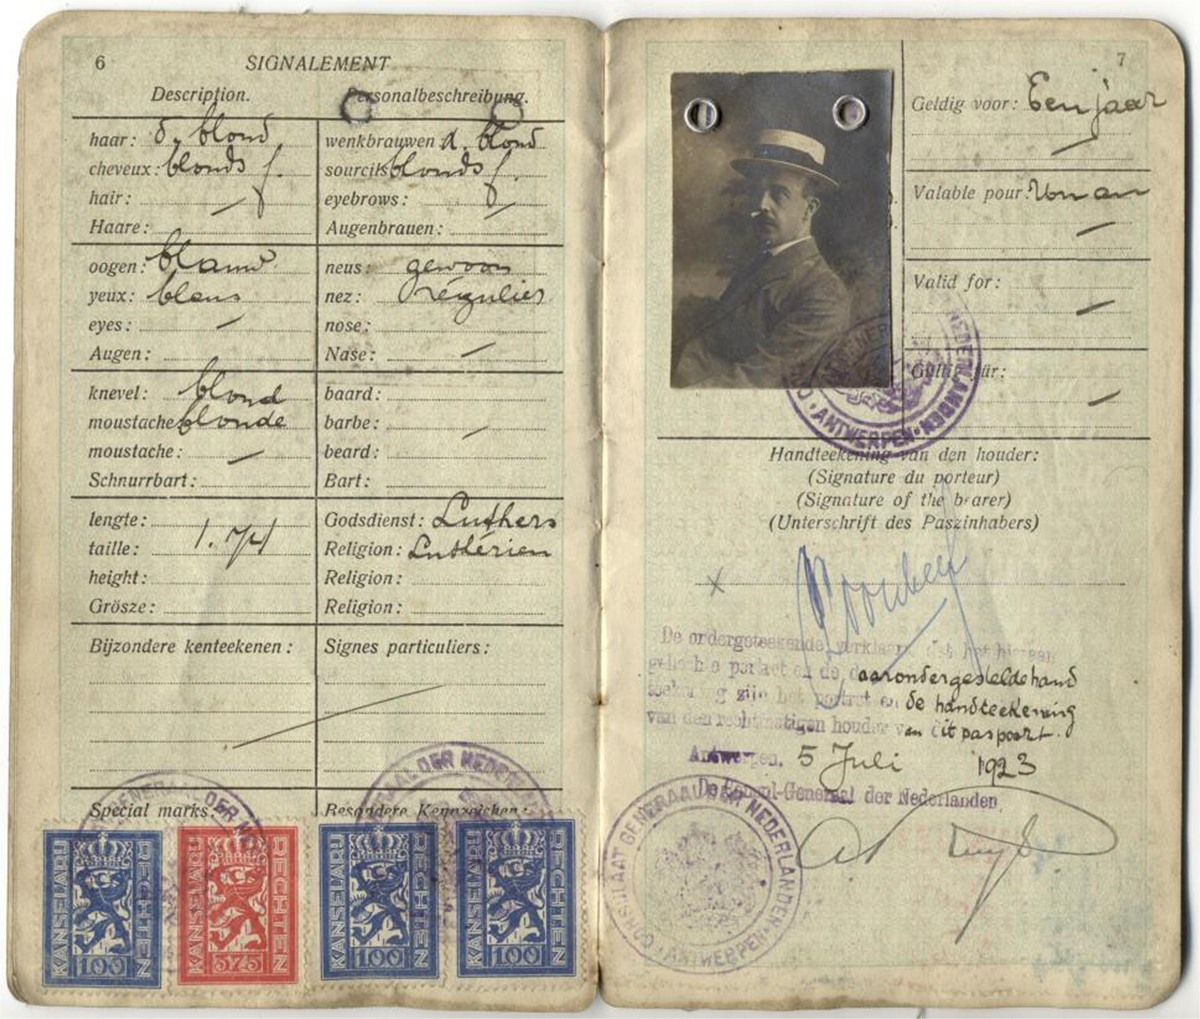 6
SIGNALEMENT
Description.
Personalbeschreibung.
haar: d. blond
cheveux: blonds f.
hair: —
Haare:
wenkbrauwen d. blond
sourcils blonds f.
eyebrows: —
Augenbrauen:
oogen: blauw
yeux: bleus
eyes: —
Augen:
neus: gewoon
nez: régulier
nose:
Nase: —
knevel: blond
moustache: blonde
moustache: —
Schnurrbart:
baard:
barbe: —
beard:
Bart:
lengte:
taille: 1.74
height:
Grösze:
Godsdienst: Luthers
Religion: Luthérien
Religion:
Religion:
Bijzondere kenteekenen:
Signes particuliers:
Special marks:
Besondere Kennzeichen:
KANSELARIJ RECHTEN 100
KANSELARIJ RECHTEN 575
KANSELARIJ RECHTEN 100
KANSELARIJ RECHTEN 100
7
Geldig voor: Een jaar
Valable pour: Un an
Valid for: —
Gültig für: —
ANTWERPEN · NEDERLANDEN
Handteekening van den houder:
(Signature du porteur)
(Signature of the bearer)
(Unterschrift des Paszinhabers)
x
De ondergeteekende verklaart dat het hieraan
gehechte portret en de daarondergesteldehand
teekening zijn het portret en de handteekening
van den rechtmatigen houder van dit paspoort.
Antwerpen. 5 Juli 1923
De Consul-Generaal der Nederlanden
CONSULAAT GENERAAL DER NEDERLANDEN · ANTWERPEN